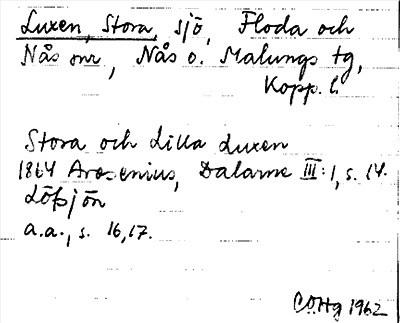 Luxen, Stora, sjö, Floda och
Nås snr, Nås o. Malungs tg,
Kopp. l.
Stora och Lilla Luxen
1864 Arosenius, Dalarne III:1, s. 14.
Löfsjön
a.a., s. 16,17.
CÖHg 1962